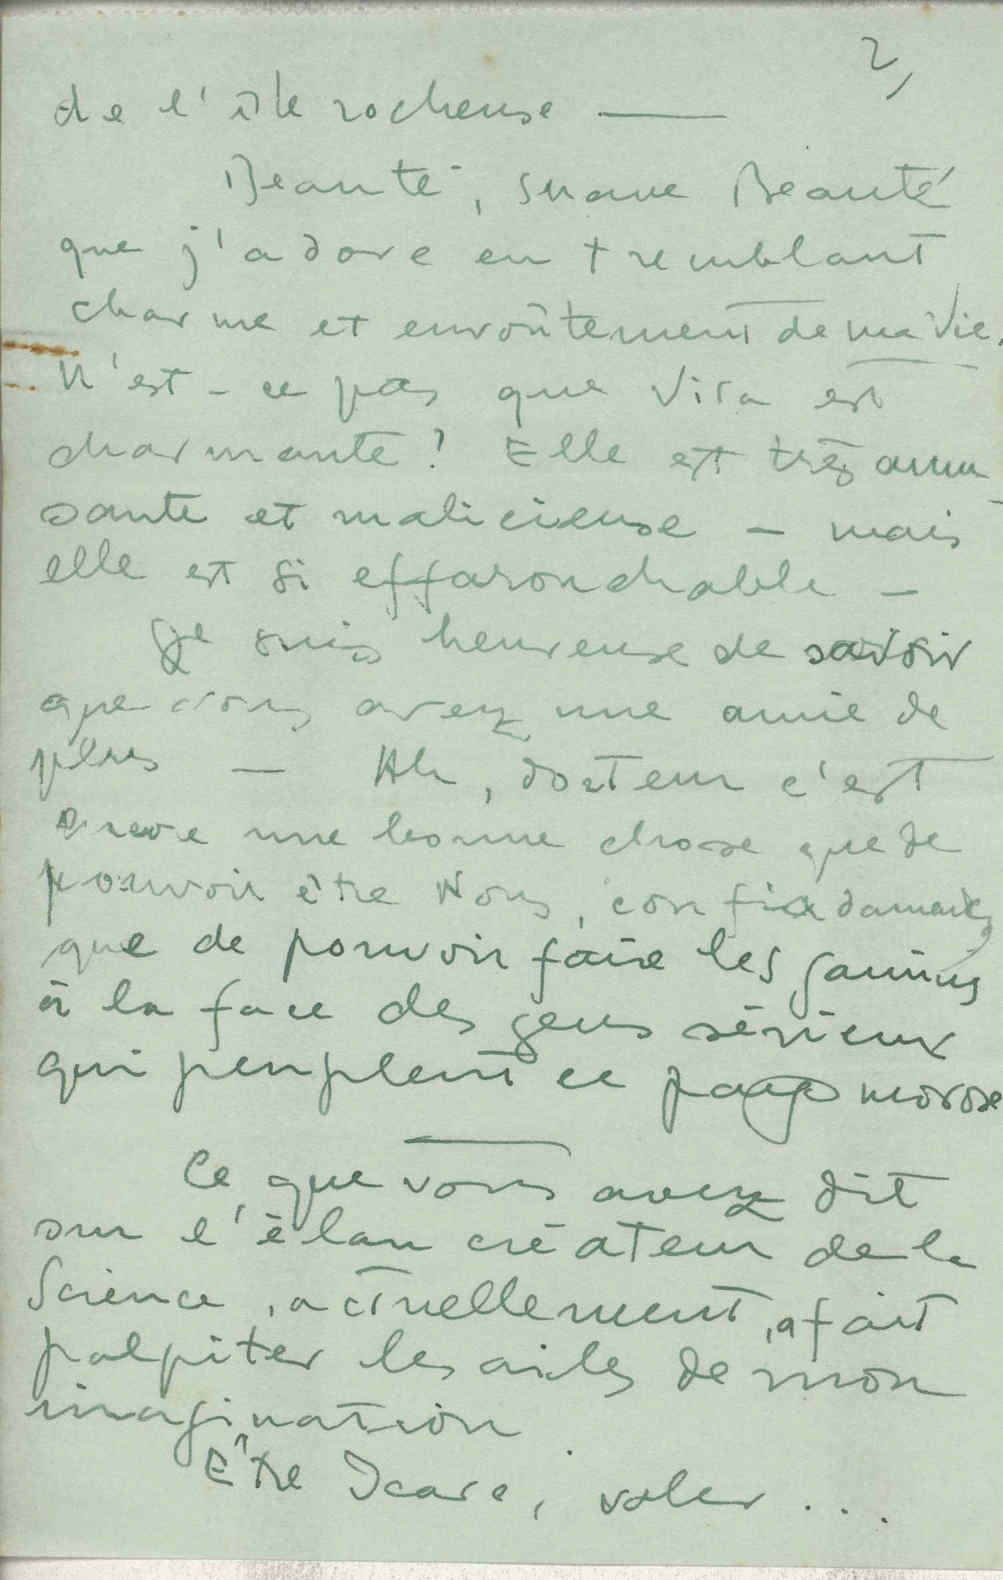 2,
de l'île rocheuse —
Beauté, suave Beauté
que j'adore en tremblant
charme et envoûtement de ma vie.
N'est-ce pas que Vira est
charmante! Elle est très amu-
sante et malicieuse – mais
elle est si effarouchable –
Je suis heureuse de savoir
que vous avez une amie de
plus – Ah, docteur c'est
encore une bonne chose que de
pouvoir être Nous,
que de pouvoir faire les gamins
à la face des gens sérieux
qui peuplent ce pays morose
Ce que vous avez dit
sur l'élan créateur de la
Science, actuellement, a fait
palpiter les ailes de mon
imagination
Être Icare, voler...